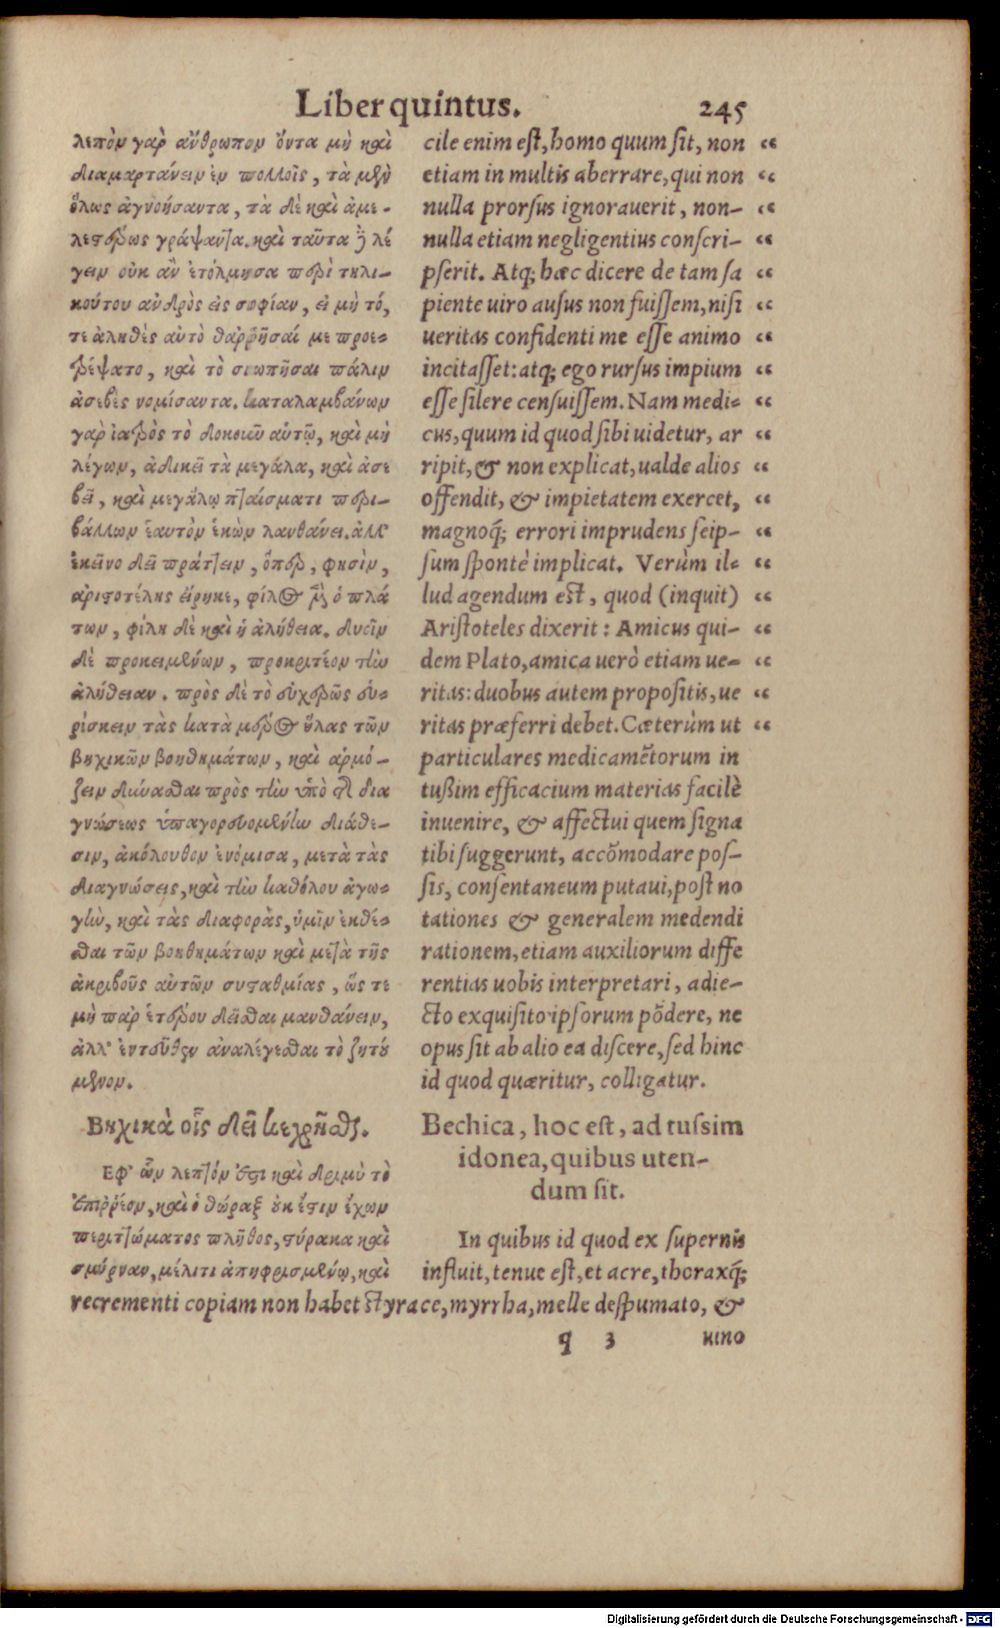 Liber quintus. 245
λεπὸν γὰρ ἄνθρωπον ὄντα μὴ καὶ
διαμαρτάνειν ἐν πολλοῖς, τὰ μὲν
ὅλως ἀγνοήσαντα, τὰ δὲ καὶ ἀμε-
λεστέρως γράψαντα. καὶ ταῦτα ἢ λέ
γειν οὐκ ἂν ἐτόλμησα περὶ τηλι-
κούτου ἀνδρὸς εἰς σοφίαν, εἰ μὴ τό,
τε ἀληθὲς αὐτὸ θαῤῥῆσαί με προε-
τρέψατο, καὶ τὸ σιωπῆσαι πάλιν
ἀσεβὲς νομίσαντα. καταλαμβάνων
γὰρ ἰατρὸς τὸ δοκοιοῦν αὐτῷ, καὶ μὴ
λέγων, ἀδικεῖ τὰ μεγάλα, καὶ ἀσε
βεῖ, καὶ μεγάλῳ πταίσματι περι-
βάλλων ἑαυτὸν ἑκὼν λανθάνει. ἀλλ'
ἐκεῖνο δεῖ πράττειν, ὅπερ, φησὶν,
ἀριστοτέλης εἴρηκε, φίλος μὲν ὁ πλά
των, φίλη δὲ καὶ ἡ ἀλήθεια. δυεῖν
δὲ προκειμένων, προκριτέον τὴν
ἀλήθειαν. πρὸς δὲ τὸ εὐχερῶς εὑ-
ρίσκειν τὰς κατὰ μέρος ὕλας τῶν
βηχικῶν βοηθημάτων, καὶ ἁρμό-
ζειν δύνασθαι πρὸς τὴν ὑπὸ τῆς δια
γνώσεως ὑπαγορευομένην διάθε-
σιν, ἀκόλουθον ἐνόμισα, μετὰ τὰς
διαγνώσεις, καὶ τὴν καθόλου ἀγω-
γὴν, καὶ τὰς διαφορὰς, ὑμῖν ἐκθέ-
σθαι τῶν βοηθημάτων καὶ μετὰ τῆς
ἀκριβοῦς αὐτῶν συσταθμίας, ὥς τε
μὴ παρ ἑτέρου δεῖσθαι μανθάνειν,
ἀλλ' ἐντεῦθεν ἀναλέγεσθαι τὸ ζητού
μενον.
Βηχικὰ οἷς δεῖ κεχρῆσθαι.
Εφ' ὧν λεπτόν ἐστι καὶ δριμὺ τὸ
ἐπιῤῥέον, καὶ ὁ θώραξ οὐκ ἔστιν ἔχων
περιττώματος πλῆθος, στύρακα καὶ
σμύρναν, μέλιτι ἀπηφρισμένῳ, καὶ
cile enim est, homo quum sit, non “
etiam in multis aberrare, qui non “
nulla prorsus ignorauerit, non- “
nulla etiam negligentius conscri- “
pserit. Atq; hæc dicere de tam sa “
piente uiro ausus non fuissem, nisi “
ueritas confidenti me esse animo “
incitasset: atq; ego rursus impium “
esse silere censuissem. Nam medi- “
cus, quum id quod sibi uidetur, ar “
ripit, & non explicat, ualde alios “
offendit, & impietatem exercet, “
magnoq́; errori imprudens seip- “
sum spontè implicat. Verùm il- “
lud agendum est, quod (inquit) “
Aristoteles dixerit: Amicus qui- “
dem Plato, amica uerò etiam ue- “
ritas: duobus autem propositis, ue “
ritas præferri debet. Cæterùm ut “
particulares medicamẽtorum in
tußim efficacium materias facilè
inuenire, & affectui quem signa
tibi suggerunt, accõmodare pos-
sis, consentaneum putaui, post no
tationes & generalem medendi
rationem, etiam auxiliorum diffe
rentias uobis interpretari, adie-
cto exquisito ipsorum põdere, ne
opus sit ab alio ea discere, sed hinc
id quod quæritur, colligatur.
Bechica, hoc est, ad tussim
idonea, quibus uten-
dum sit.
In quibus id quod ex supernis
influit, tenue est, et acre, thoraxq́;
recrementi copiam non habet styrace, myrrha, melle despumato, &
q 3 nino
Digitalisierung gefördert durch die Deutsche Forschungsgemeinschaft - DFG